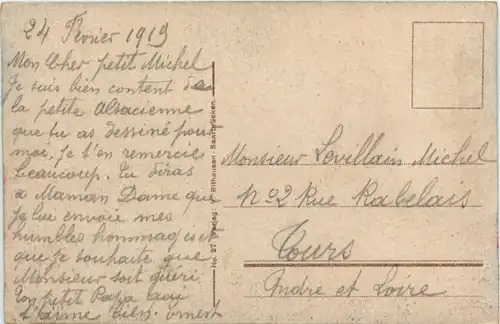 24 Février 1919
Mon Cher petit Michel
Je suis bien content de
la petite Alsacienne
que tu as dessiné pour
moi. Je t'en remercie
beaucoup. Tu diras
a Maman Dame que
Je lui envoie mes
humbles hommages et
que je souhaite que
Monsieur soit guéri
Ton petit Papa que
t'aime bien.
No. 27. Verlag: Rithausen Saarbrücken.
Monsieur Levillain Michel
No 2 Rue Rabelais
Tours
Indre et Loire